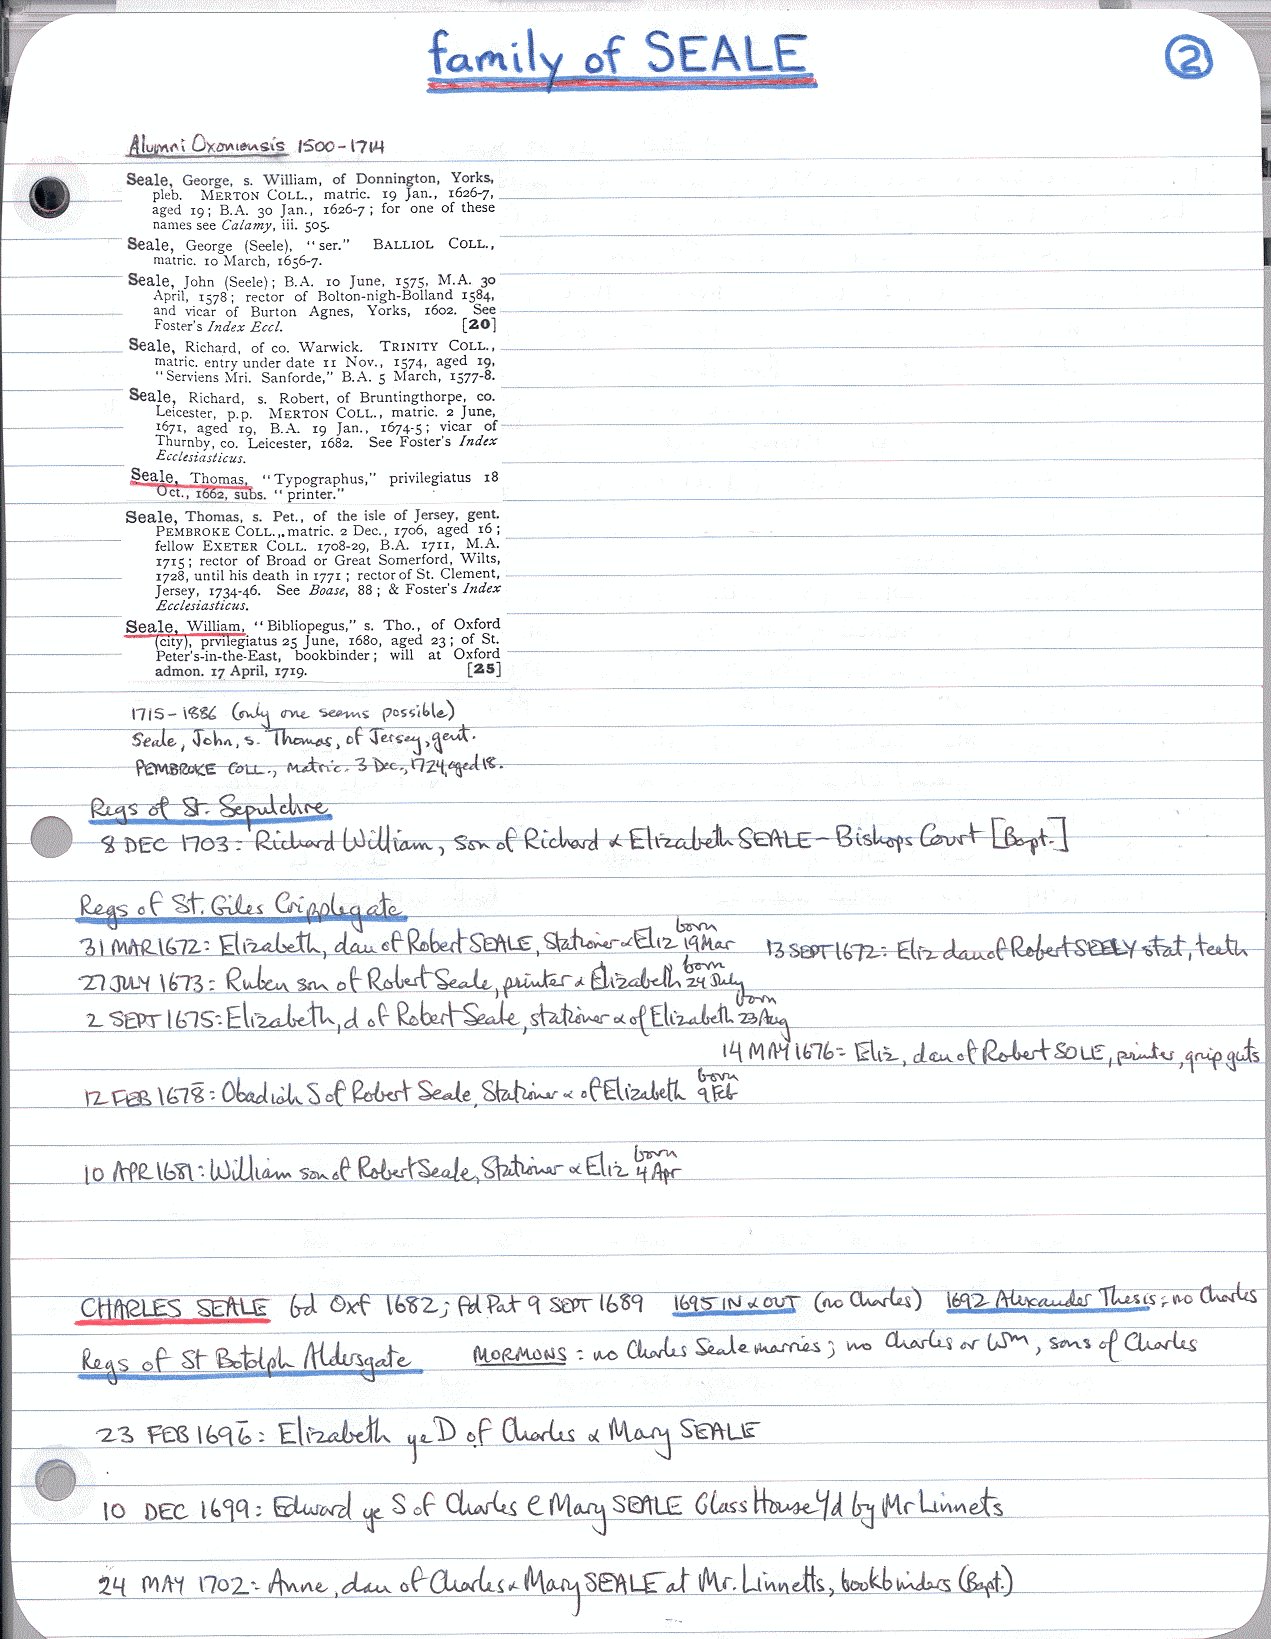 family of SEALE
2
Alumni Oxoniensis 1500-1714
Seale, George, s. William, of Donnington, Yorks,
pleb. MERTON COLL., matric. 19 Jan., 1626-7,
aged 19; B.A. 30 Jan., 1626-7; for one of these
names see Calamy, iii. 505.
Seale, George (Seele), "ser." BALLIOL COLL.,
matric. 10 March, 1656-7.
Seale, John (Seele); B.A. 10 June, 1575, M.A. 30
April, 1578; rector of Bolton-nigh-Bolland 1584,
and vicar of Burton Agnes, Yorks, 1602. See
Foster's Index Eccl. [20]
Seale, Richard, of co. Warwick. TRINITY COLL.,
matric. entry under date 11 Nov., 1574, aged 19,
"Serviens Mri. Sanforde," B.A. 5 March, 1577-8.
Seale, Richard, s. Robert, of Bruntingthorpe, co.
Leicester, p.p. MERTON COLL., matric. 2 June,
1671, aged 19, B.A. 19 Jan., 1674-5; vicar of
Thurnby, co. Leicester, 1682. See Foster's Index
Ecclesiasticus.
Seale, Thomas, "Typographus," privilegiatus 18
Oct., 1662, subs. "printer."
Seale, Thomas, s. Pet., of the isle of Jersey, gent.
PEMBROKE COLL.,, matric. 2 Dec., 1706, aged 16;
fellow EXETER COLL. 1708-29, B.A. 1711, M.A.
1715; rector of Broad or Great Somerford, Wilts,
1728, until his death in 1771; rector of St. Clement,
Jersey, 1734-46. See Boase, 88; & Foster's Index
Ecclesiasticus.
Seale, William, "Bibliopegus," s. Tho., of Oxford
(city), prvilegiatus 25 June, 1680, aged 23; of St.
Peter's-in-the-East, bookbinder; will at Oxford
admon. 17 April, 1719. [25]
1715-1886 (only one seems possible)
Seale, John, s. Thomas, of Jersey, gent.
PEMBROKE COLL., matric. 3 Dec., 1724, aged 18.
Regs of St. Sepulchre
8 DEC 1703: Richard William, son of Richard & Elizabeth SEALE - Bishops Court [Bapt.]
Regs of St. Giles Cripplegate
31 MAR 1672: Elizabeth, dau of Robert SEALE, Stationer & Eliz born 19 Mar 13 SEPT 1672: Eliz dau of Robert SEELY stat, teeth
27 JULY 1673: Ruben son of Robert Seale, printer & Elizabeth born 24 July
2 SEPT 1675: Elizabeth, d of Robert Seale, stationer & of Elizabeth born 23 Aug
14 MAY 1676: Eliz, dau of Robert SOLE, printer, grip guts
12 FEB 1678: Obadiah S of Robert Seale, Stationer & of Elizabeth born 9 Feb
10 APR 1681: William son of Robert Seale, Stationer & Eliz born 4 Apr
CHARLES SEALE bd Oxf 1682; fd Pat 9 SEPT 1689 1695 IN & OUT (no Charles) 1692 Alexander Thesis: no Charles
Regs of St Botolph Aldersgate MORMONS: no Charles Seale marries; no Charles or Wm, sons of Charles
23 FEB 1696: Elizabeth ye D of Charles & Mary SEALE
10 DEC 1699: Edward ye S of Charles & Mary SEALE Glass House Yd by Mr Linnets
24 MAY 1702: Anne, dau of Charles & Mary SEALE at Mr. Linnetts, bookbinders (Bapt.)